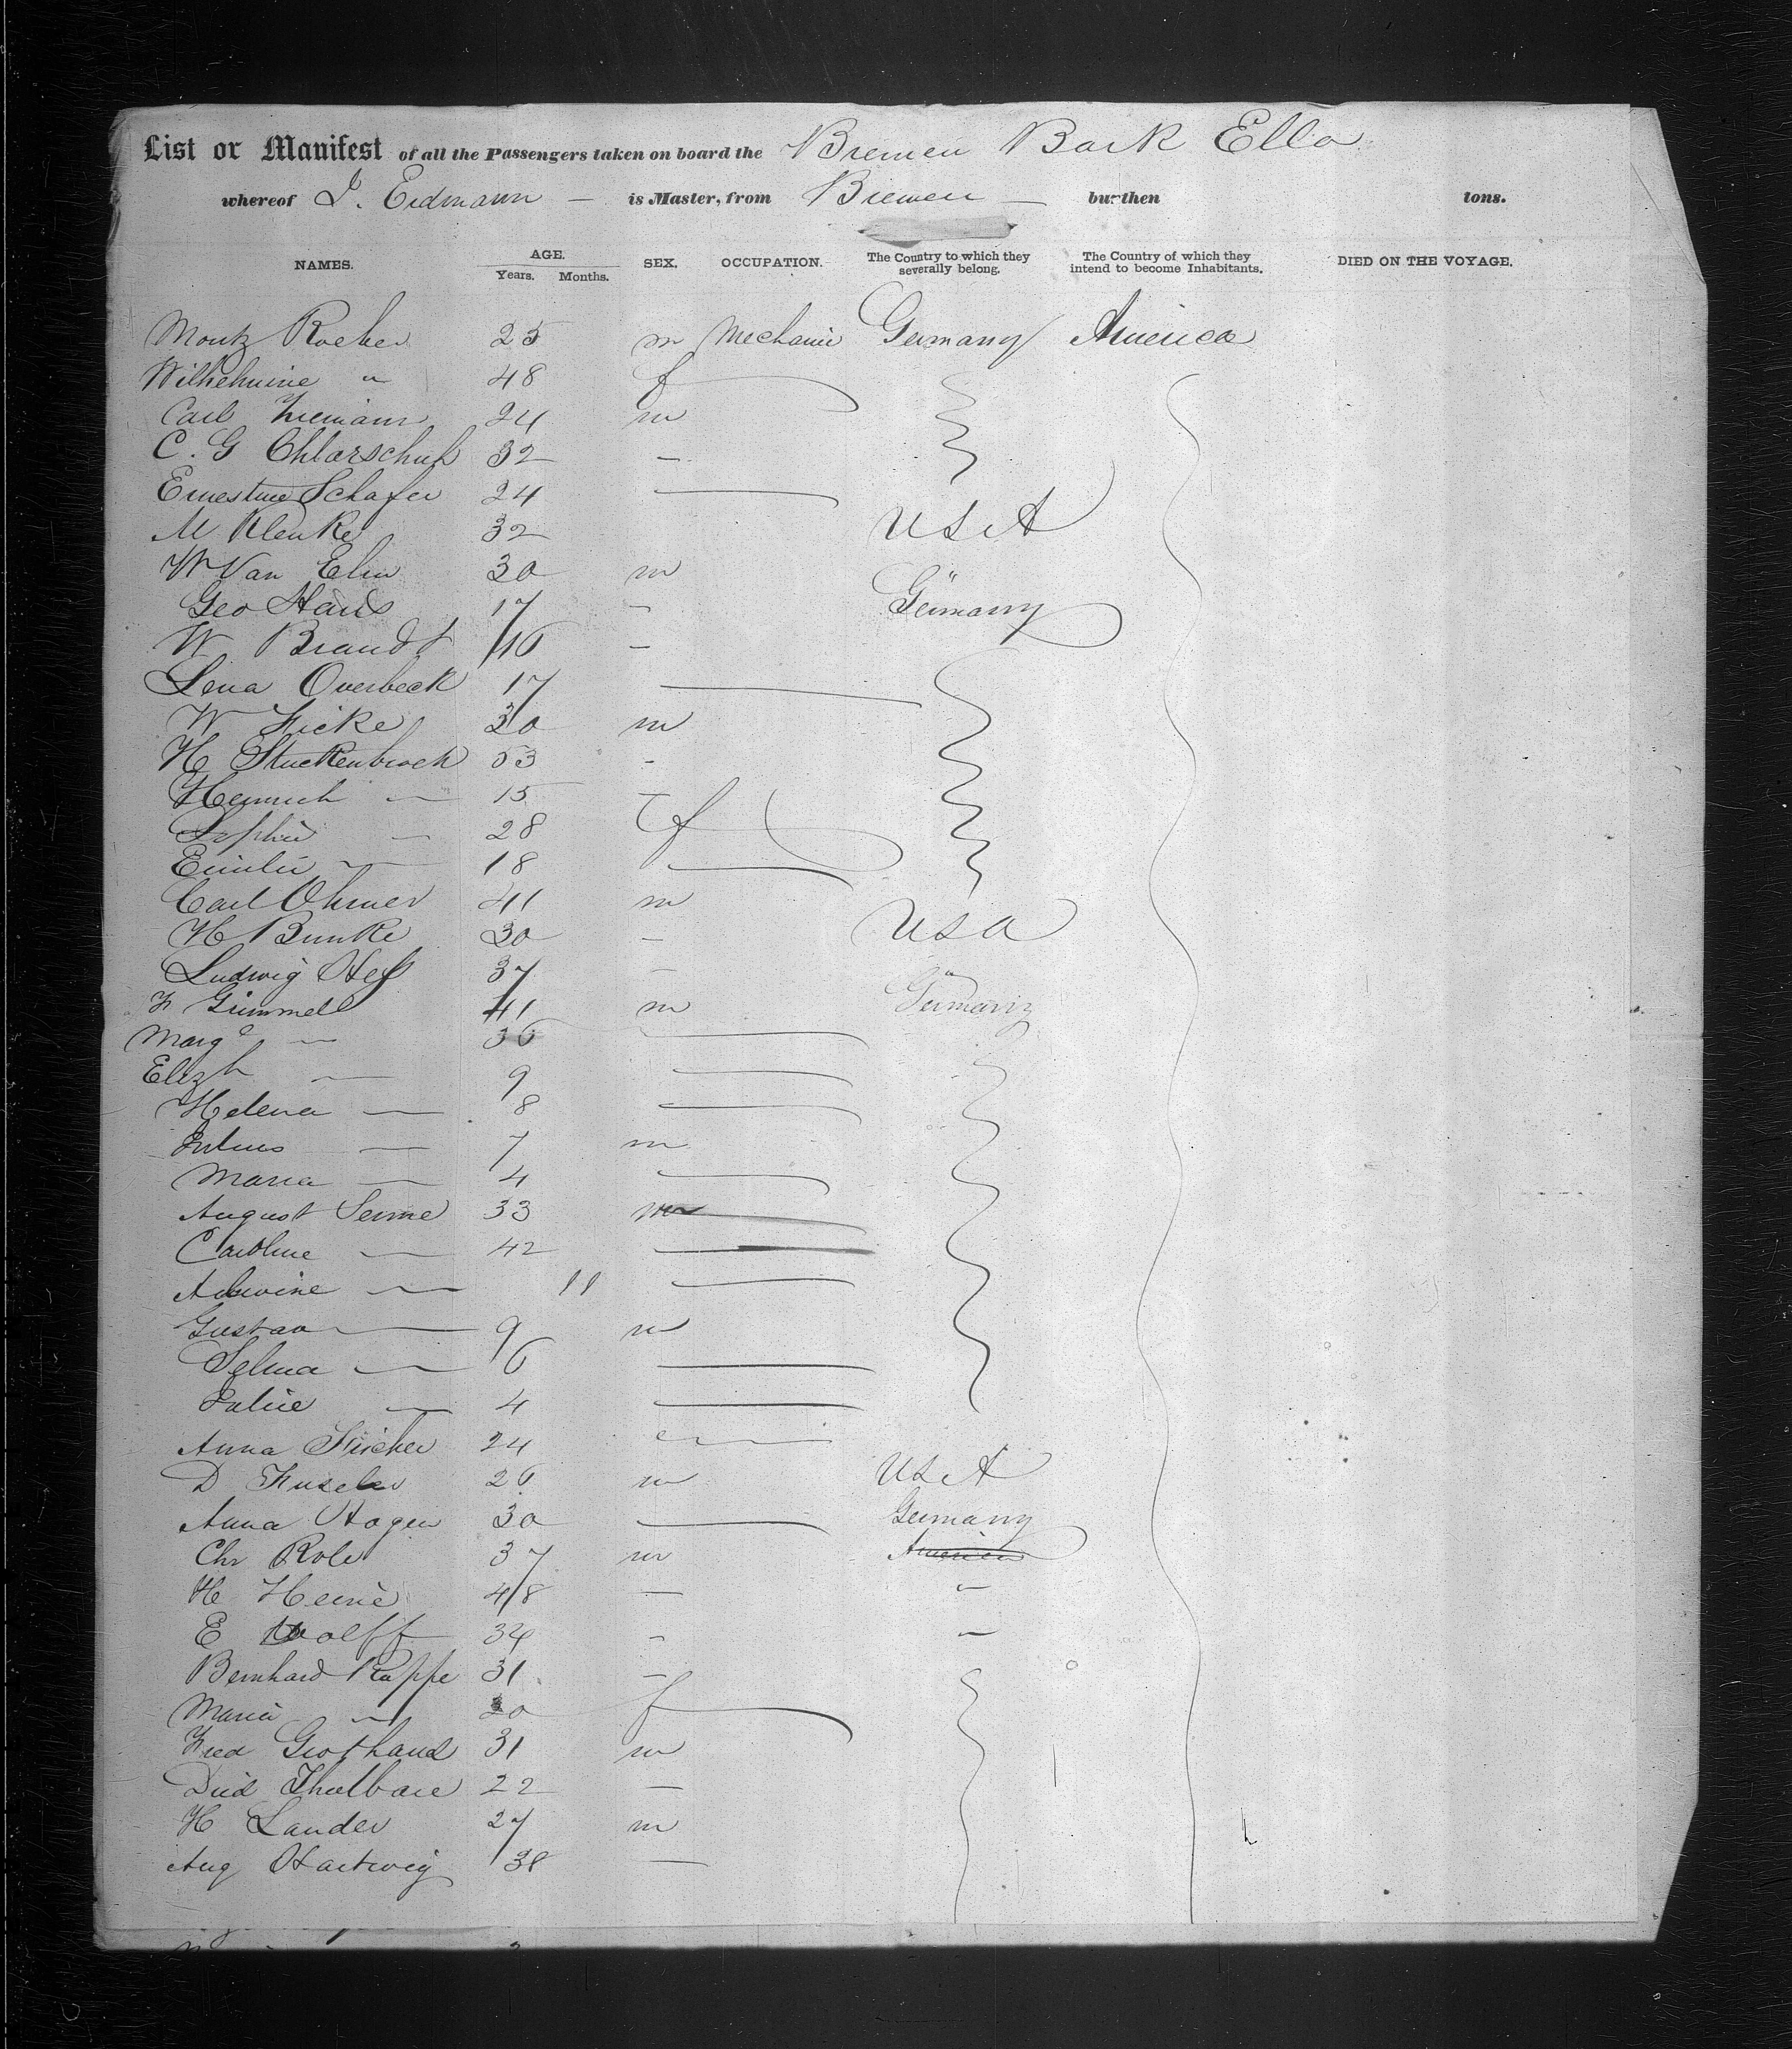 List or Manifest of all the Passengers taken on board the Bremen Bark Ella
whereof J. Erdmann — is Master, from Bremen — burthen tons.
NAMES. AGE. Years. Months. SEX. OCCUPATION. The Country to which they severally belong. The Country of which they intend to become Inhabitants. DIED ON THE VOYAGE.
Moritz Rocher 25 m Mechanic Germany America
Wilhelmine " 48 f
Carl Niemann 24 m
C. G Chlarschuh 32 —
Ernestine Schafer 24
M Klenke 32 USA
W Van Elm 30 m "
Geo Haris 17 — Germany
W Brandt 16 —
Lena Overbeck 17
W Fricke 30 m
H Stuckenbrock 53 -
Heinrich — 15 —
Sophie — 28 f
Emilie — 18
Carl Ohmer 41 m
H Bunke 30 — USA
Ludwig Hess 37 — "
F Grimmel 41 m Germany
Marg — 36
Elizh — 9
Helena — 8
Julius — 7 m
Maria — 4
August Serme 33 m
Caroline — 42
Adwine — 11
Gustav — 9 m
Selma — 6
Julie — 4
Anna Fricher 24
D 26 m USA
Anna Hagen 30 Germany
Chr Role 37 m America
H Heine 48 — "
E Wolff 34 - "
Bernhard Rappe 31 —
Maria — 20 f
Fred Grothaus 31 m
Died 22 —
H Lander 27 m
Aug Hartwig 38 —